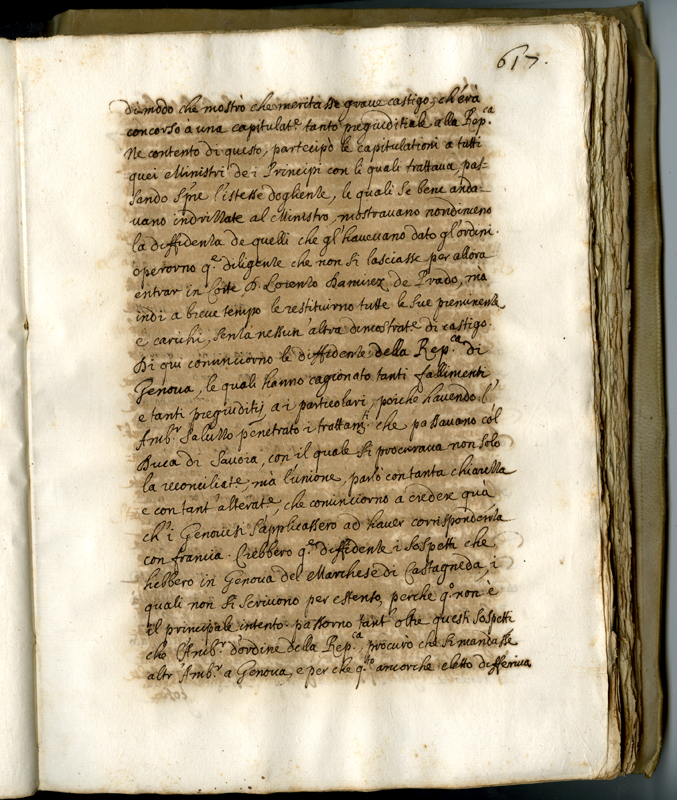 617.
dimodo che mostrò che meritasse grave castigo, ch'era
concorso à una capitulat.e tanto pregiuditiale alla Rep.ca
Ne contento di questo, partecipò le capitulationi a tutti
quei Ministri de i Principi con li quali trattava, pas-
sando l'istesse doglienze, le quali se bene anda-
vano indrizzate al Ministro, mostravano nondimeno
la diffidenza de quelli che gl'havevano dato gl'ordini.
operorno q.e diligenze che non si lasciasse per allora
entrar in Corte D. Lorenzo Ramirez de Prado, mà
indi a breve tempo le restituirno tutte le sue preminenze
e carichi, senza nessun'altra dimostrat.e di castigo.
Di qui cominciorno le diffidenze della Rep.ca di
Genova, le quali hanno cagionato tanti fallimenti
e tanti pregiuditij a i particolari, poiche havendo l'
Amb.r Saluzzo penetrato i trattam.ti che passavano col
Duca di Savoia, con il quale si procurava non solo
la reconciliat.e, mà l'unione, parlò con tanta chiarezza
e con tant'alterat.e, che cominciorno a creder quà
ch'i Genovesi s'applicassero ad haver corrispondenza
con francia. Crebbero q.e diffidenze i sospetti che
hebbero in Genova del Marchese di Castagneda, i
quali non si scrivono per estenso, perche q.o non è
il principale intento. passorno tant'oltre questi sospetti
che l'Amb.r d'ordine della Rep.ca procurò che si mandasse
altr'Amb.r a Genova, e perche q.sto ancorche eletto differiva